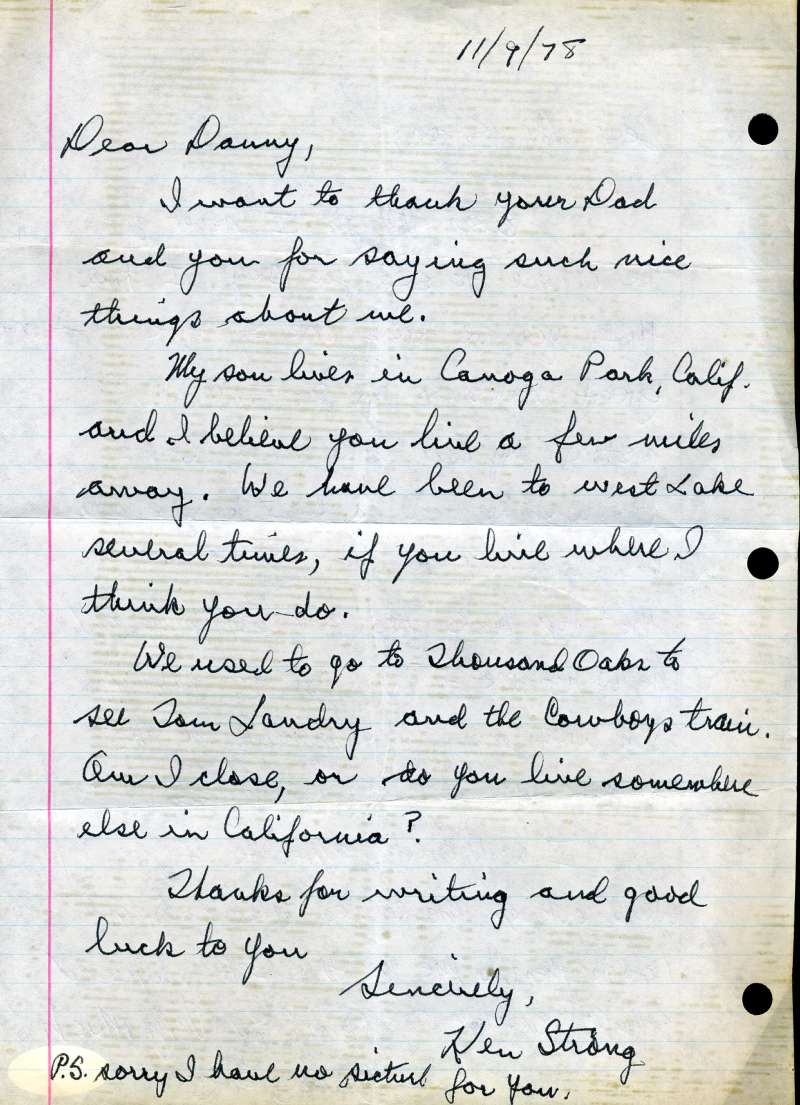 11/9/78
Dear Danny,
I want to thank your Dad
and you for saying such nice
things about me.
My son lives in Canoga Park, Calif.
and I believe you live a few miles
away. We have been to west Lake
several times, if you live where I
think you do.
We used to go to Thousand Oaks to
see Tom Landry and the Cowboys train.
Am I close, or do you live somewhere
else in California?
Thanks for writing and good
luck to you
Sincerely,
Ken Strong
P.S. sorry I have no picture for you.